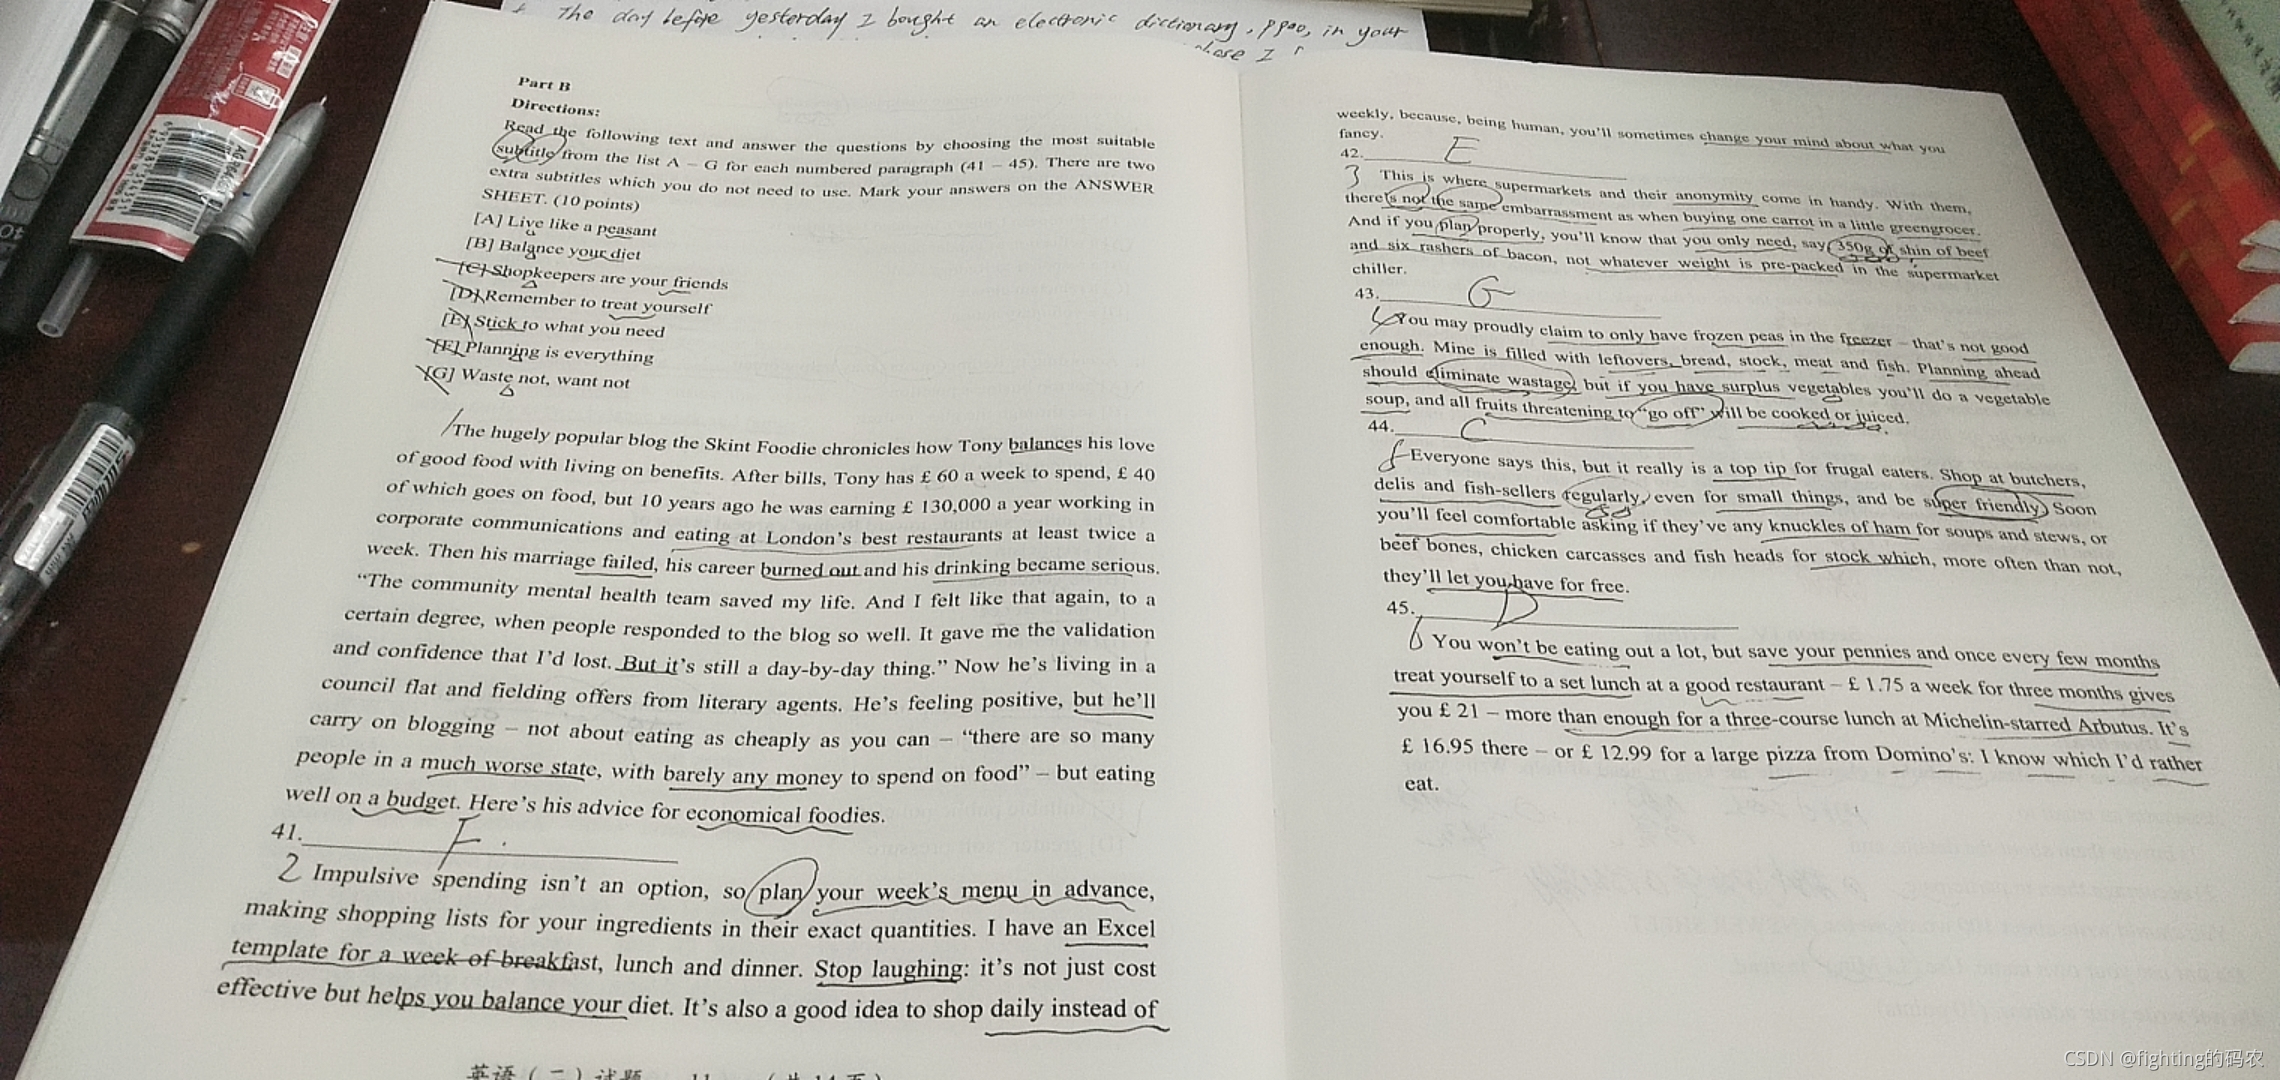 The day before yesterday I bought an electronic dictionary, in your
Part B
Directions:
Read the following text and answer the questions by choosing the most suitable
subtitle from the list A – G for each numbered paragraph (41 – 45). There are two
extra subtitles which you do not need to use. Mark your answers on the ANSWER
SHEET. (10 points)
[A] Live like a peasant
[B] Balance your diet
[C] Shopkeepers are your friends
[D] Remember to treat yourself
[E] Stick to what you need
[F] Planning is everything
[G] Waste not, want not
1 The hugely popular blog the Skint Foodie chronicles how Tony balances his love
of good food with living on benefits. After bills, Tony has £ 60 a week to spend, £ 40
of which goes on food, but 10 years ago he was earning £ 130,000 a year working in
corporate communications and eating at London's best restaurants at least twice a
week. Then his marriage failed, his career burned out and his drinking became serious.
“The community mental health team saved my life. And I felt like that again, to a
certain degree, when people responded to the blog so well. It gave me the validation
and confidence that I'd lost. But it's still a day-by-day thing.” Now he's living in a
council flat and fielding offers from literary agents. He's feeling positive, but he'll
carry on blogging – not about eating as cheaply as you can – “there are so many
people in a much worse state, with barely any money to spend on food” – but eating
well on a budget. Here's his advice for economical foodies.
41. F
2 Impulsive spending isn't an option, so plan your week's menu in advance,
making shopping lists for your ingredients in their exact quantities. I have an Excel
template for a week of breakfast, lunch and dinner. Stop laughing: it's not just cost
effective but helps you balance your diet. It's also a good idea to shop daily instead of
英语（二）试题
weekly, because, being human, you'll sometimes change your mind about what you
fancy.
42. E
3 This is where supermarkets and their anonymity come in handy. With them,
there's not the same embarrassment as when buying one carrot in a little greengrocer.
And if you plan properly, you'll know that you only need, say 350g of shin of beef
and six rashers of bacon, not whatever weight is pre-packed in the supermarket
chiller.
43. G
4 You may proudly claim to only have frozen peas in the freezer – that's not good
enough. Mine is filled with leftovers, bread, stock, meat and fish. Planning ahead
should eliminate wastage, but if you have surplus vegetables you'll do a vegetable
soup, and all fruits threatening to “go off” will be cooked or juiced.
44. C
5 Everyone says this, but it really is a top tip for frugal eaters. Shop at butchers,
delis and fish-sellers regularly, even for small things, and be super friendly. Soon
you'll feel comfortable asking if they've any knuckles of ham for soups and stews, or
beef bones, chicken carcasses and fish heads for stock which, more often than not,
they'll let you have for free.
45. D
6 You won't be eating out a lot, but save your pennies and once every few months
treat yourself to a set lunch at a good restaurant – £ 1.75 a week for three months gives
you £ 21 – more than enough for a three-course lunch at Michelin-starred Arbutus. It's
£ 16.95 there – or £ 12.99 for a large pizza from Domino's: I know which I'd rather
eat.
CSDN @fighting的码农